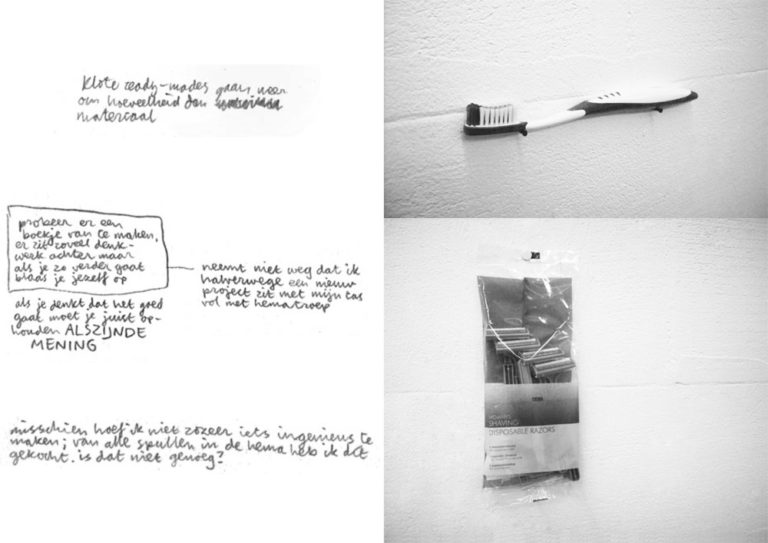 Klote ready-mades gaan weer
om hoeveelheid dan
materiaal
probeer er een
boekje van te maken,
er zit zoveel denk-
werk achter maar
als je zo verder gaat
blaas je jezelf op
neemt niet weg dat ik
halverwege een nieuw
project zit met mijn tas
vol met hematroep
als je denkt dat het goed
gaat moet je juist op-
houden ALSZIJNDE
MENING
misschien hoef ik niet zozeer iets ingenieus te
maken; van alle spullen in de hema heb ik dit
gekocht. is dat niet genoeg?
SHAVING
DISPOSABLE RAZORS